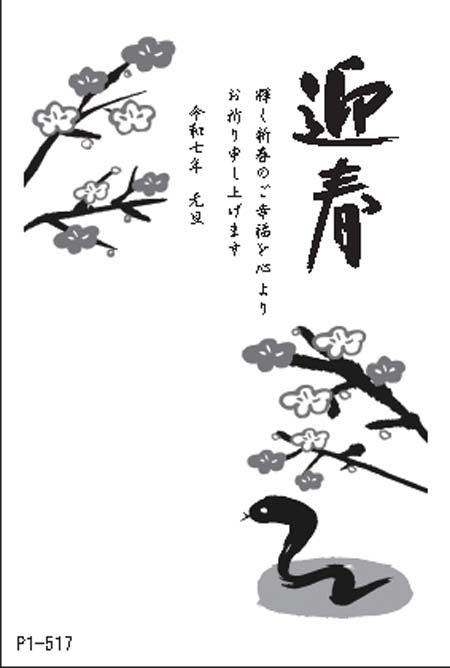 迎春
輝く新春のご幸福を心より
お祈り申し上げます
令和七年 元旦
P1-517